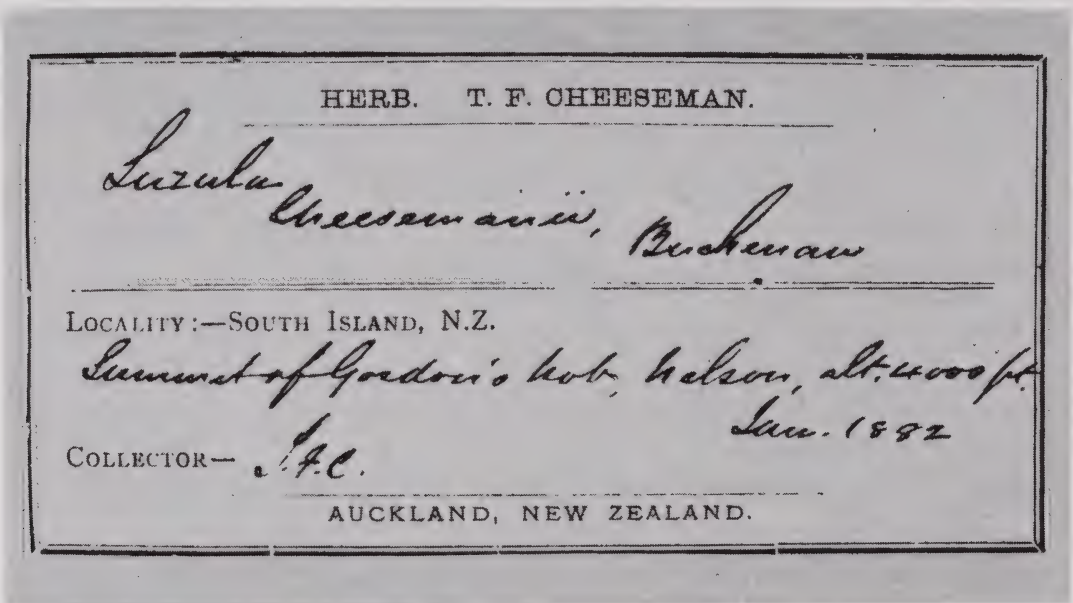 HERB. T. F. CHEESEMAN.
Luzula
Cheesemanii, Buchenau
LOCALITY:—SOUTH ISLAND, N.Z.
Summit of Gordon's Nob, Nelson, alt. 4000 ft.
Jan. 1882
COLLECTOR— T.F.C.
AUCKLAND, NEW ZEALAND.